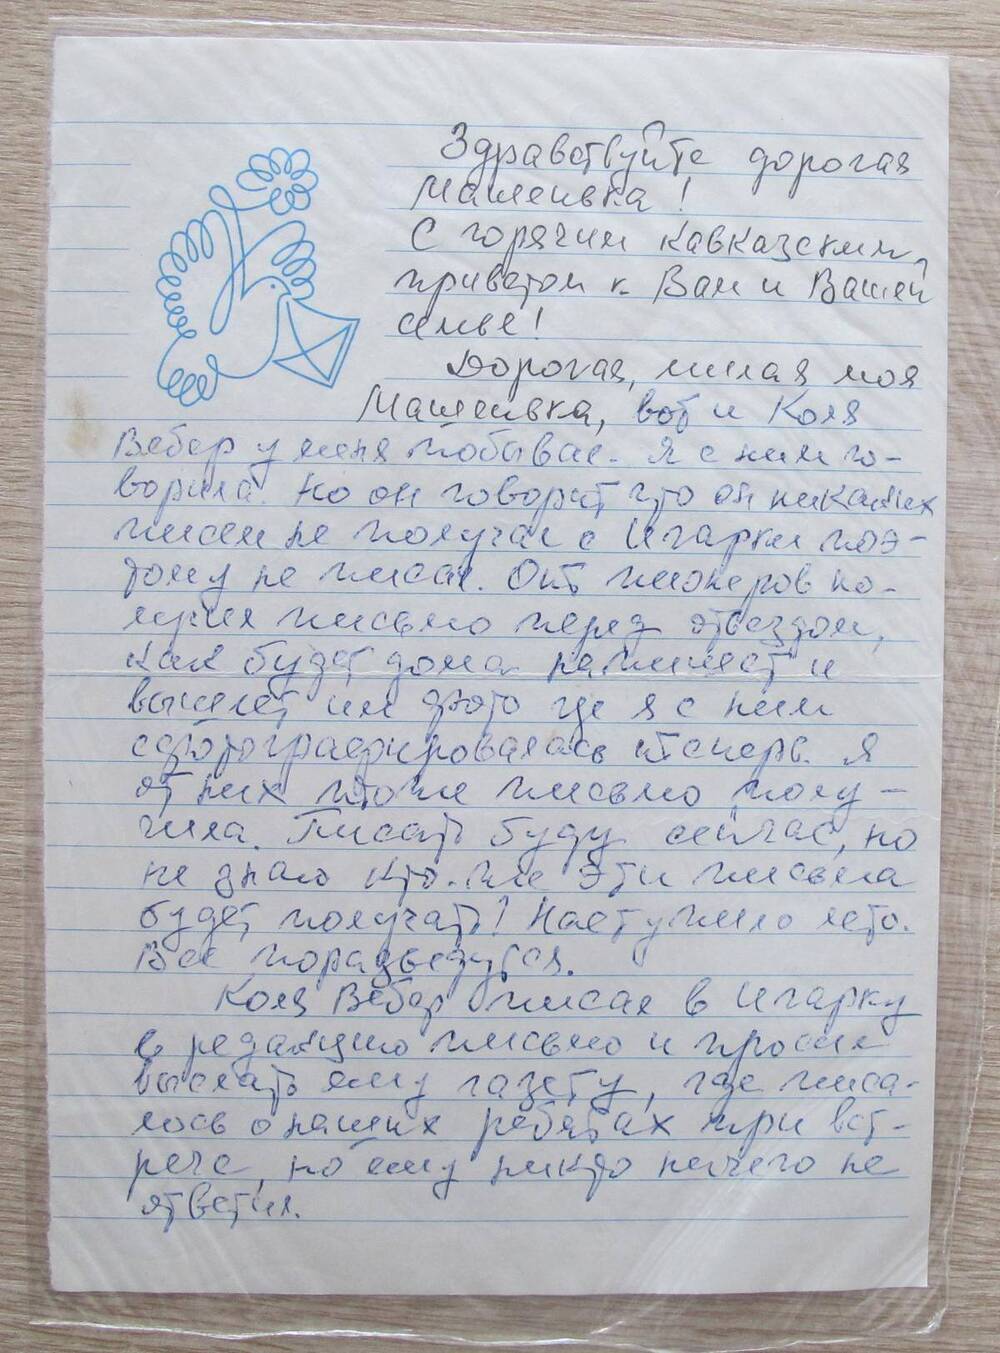 Здравствуйте дорогая
Машенька!
С горячим кавказским
приветом к Вам и Вашей
семье!
Дорогая, милая моя
Машенька, вот и Коля
Вебер у меня побывал. Я с ним го-
ворила. Но он говорит что он никаких
писем не получал с Игарки поэ-
тому не писал. От пионеров по-
лучил письмо перед отъездом,
как будет дома напишет и
вышлет им фото где я с ним
сфотографировалась теперь. Я
от них тоже письмо полу-
чила. Писать буду сейчас, но
не знаю кто же эти письма
будет получать! Наступило лето.
Все поразъедутся.
Коля Вебер писал в Игарку
в редакцию письмо и просил
выслать ему газету, где писа-
лось о наших ребятах при вст-
рече, но ему никто ничего не
ответил.